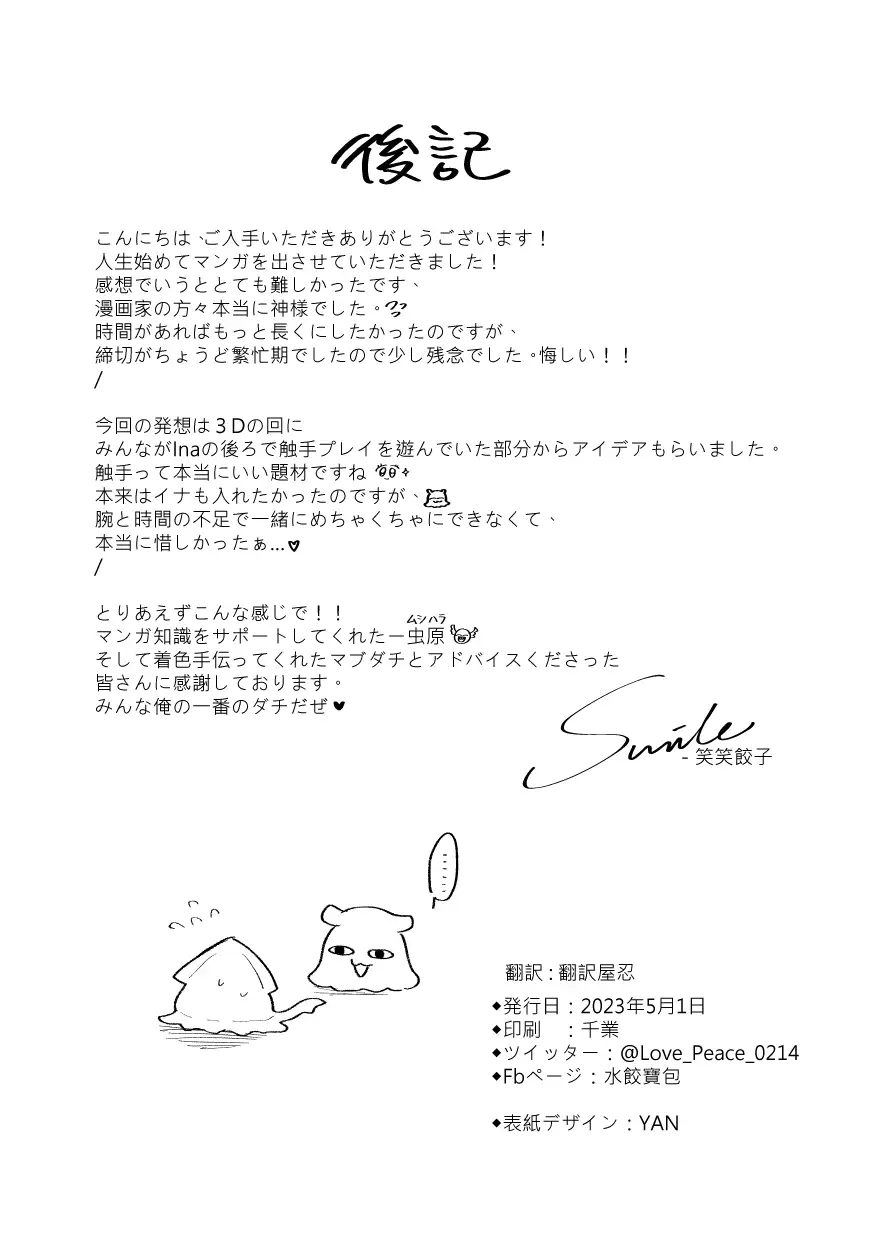 後記
こんにちは、ご入手いただきありがとうございます！
人生始めてマンガを出させていただきました！
感想でいうととても難しかったです、
漫画家の方々本当に神様でした。
時間があればもっと長くにしたかったのですが、
締切がちょうど繁忙期でしたので少し残念でした。悔しい！！
/
今回の発想は３Dの回に
みんながInaの後ろで触手プレイを遊んでいた部分からアイデアもらいました。
触手って本当にいい題材ですね
本来はイナも入れたかったのですが、
腕と時間の不足で一緒にめちゃくちゃにできなくて、
本当に惜しかったぁ...♥
/
とりあえずこんな感じで！！
ムシハラ
マンガ知識をサポートしてくれたー虫原
そして着色手伝ってくれたマブダチとアドバイスくださった
皆さんに感謝しております。
みんな俺の一番のダチだぜ♥
Smile
- 笑笑餃子
………
翻訳：翻訳屋忍
◆発行日：2023年5月1日
◆印刷　：千業
◆ツイッター：@Love_Peace_0214
◆Fbページ：水餃寶包
◆表紙デザイン：YAN